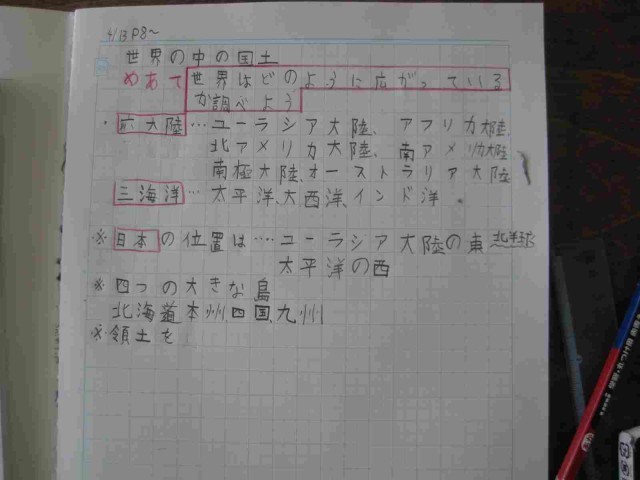 4/13 P8～
世界の中の国土
めあて 世界はどのように広がっている
か調べよう
・六大陸…ユーラシア大陸、アフリカ大陸、
北アメリカ大陸、南アメリカ大陸
南極大陸、オーストラリア大陸
三海洋…太平洋、大西洋、インド洋。
※日本の位置は‥‥ユーラシア大陸の東 北半球
太平洋の西
※四つの大きな島
北海道本州、四国、九州
※領土を